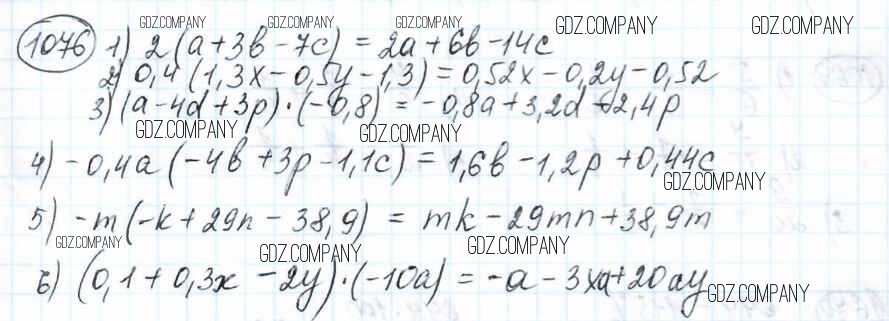 GDZ.COMPANY GDZ.COMPANY GDZ.COMPANY GDZ.COMPANY GDZ.COMPANY
1076 1) 2(a+3b-7c) = 2a+6b-14c
2) 0,4(1,3x-0,5y-1,3) = 0,52x-0,2y-0,52
3) (a-4d+3p)·(-0,8) = -0,8a+3,2d-2,4p
GDZ.COMPANY GDZ.COMPANY
4) -0,4a(-4b+3p-1,1c) = 1,6b-1,2p+0,44c
GDZ.COMPANY
5) -m(-k+29n-38,9) = mk-29mn+38,9m
GDZ.COMPANY GDZ.COMPANY GDZ.COMPANY
6) (0,1+0,3x-2y)·(-10a) = -a-3xa+20ay
GDZ.COMPANY